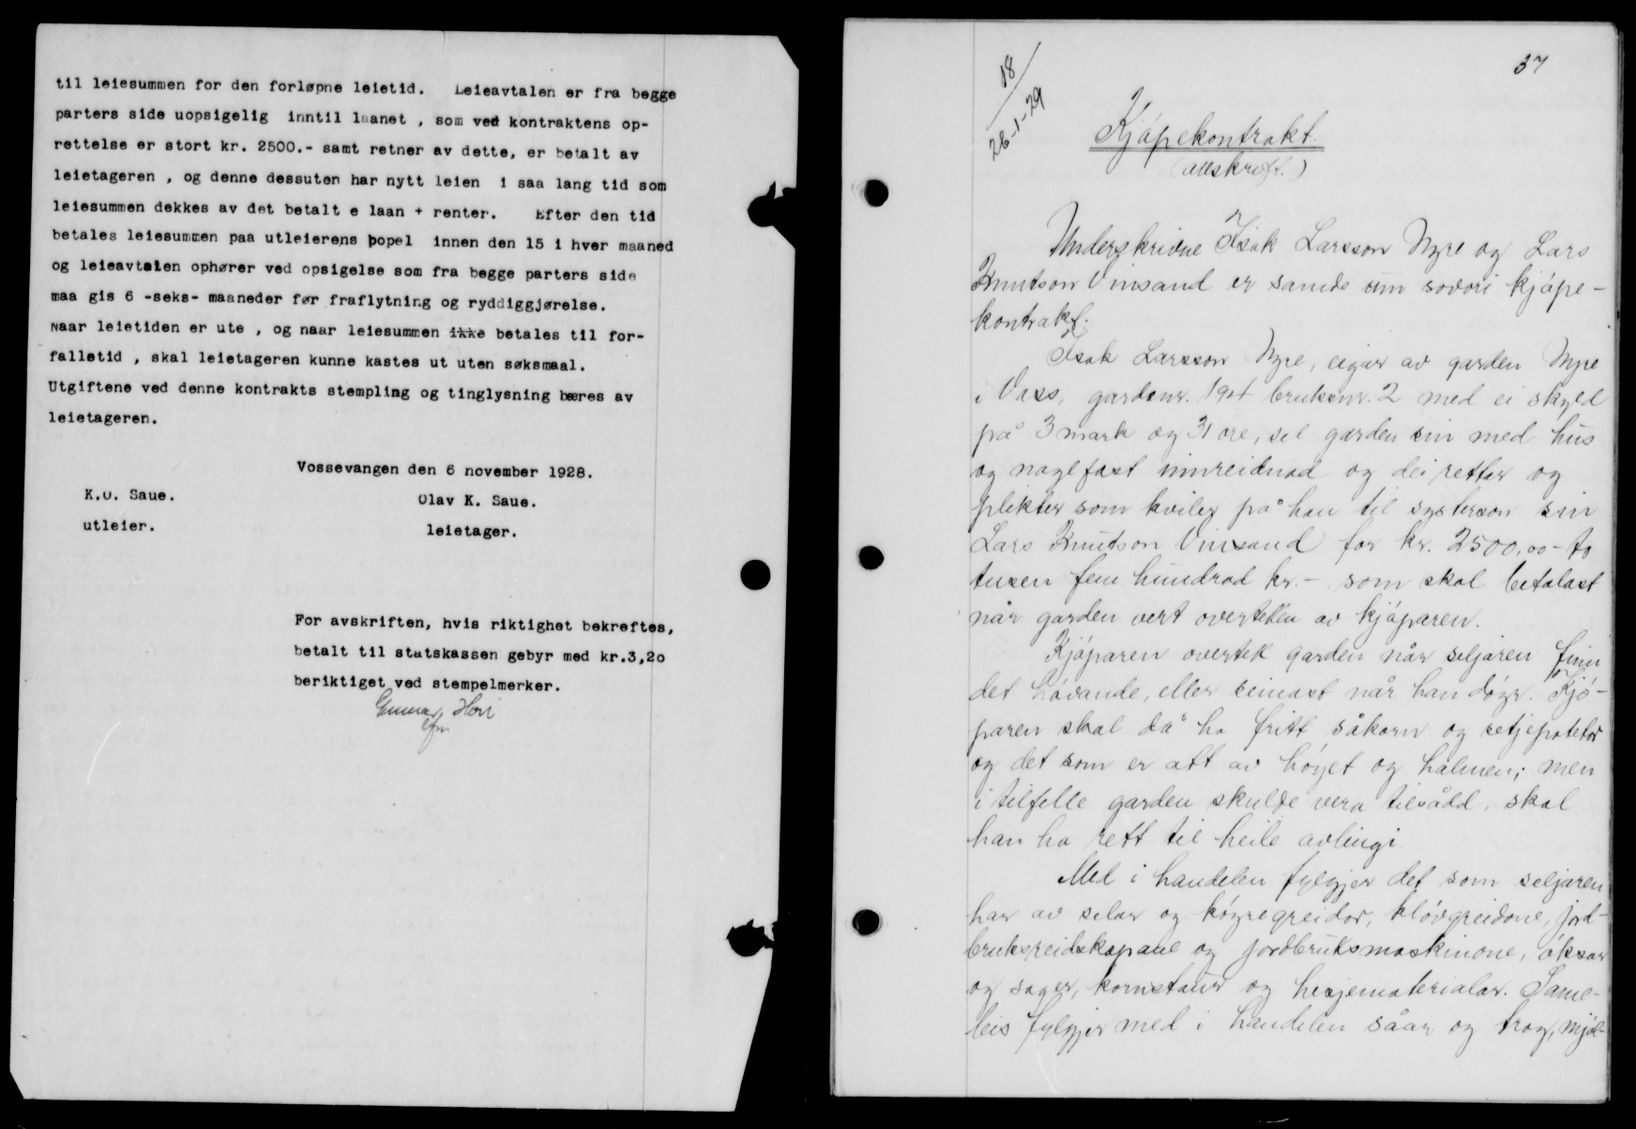 til leiesummen for den forløpne leietid. Leieavtalen er fra begge
parters side uopsigelig inntil laanet , som ved kontraktens op-
rettelse er stort kr. 2500.- samt retner av dette, er betalt av
leietageren , og denne dessuten har nytt leien i saa lang tid som
leiesummen dekkes av det betalt e laan + renter. Efter den tid
betales leiesummen paa utleierens bopel innen den 15 i hver maaned
og leieavtalen ophører ved opsigelse som fra begge parters side
maa gis 6 -seks- maaneder før fraflytning og ryddiggjørelse.
Naar leietiden er ute , og naar leiesummen ikke betales til for-
falletid , skal leietageren kunne kastes ut uten søksmaal.
Utgiftene ved denne kontrakts stempling og tinglysning bæres av
leietageren.
Vossevangen den 6 november 1928.
K.O. Saue. Olav K. Saue.
utleier. leietager.
For avskriften, hvis riktighet bekreftes,
betalt til statskassen gebyr med kr.3,20
beriktiget ved stempelmerker.
Gunnar Hori
37
18/
26-1-29
Kjøpekontrakt.
(avskrift.)
Underskrivne Isak Larsson Myre og Lars
Knutson Vinsand er samde um sovori kjøpe-
kontrakt:
Isak Larsson Myre, eigar av garden Myre
i Vass, gardsnr. 194 bruksnr. 2 med ei skyld
på 3 mark og 31 øre, sel garden sin med hus
og naglfast innreidnad og dei rettar og
plikter som kviler på han til systerson sin
Lars Knutson Vinsand for kr. 2500,00 - to
tusen fem hundrad kr. - som skal betalast
når garden vert overteken av kjøparen.
Kjøparen overtek garden når seljaren finn
det høvande, eller seinast når han døyr. Kjø-
paren skal då ha fritt såkorn og setjepotetor
og det som er att av høyet og halmen; men
i tilfelle garden skulde vera tilsådd, skal
han ha rett til heile avlingi.
Med i handelen fylgjer det som seljaren
har av selar og køyregreidor, kløvgreidone, jord-
bruksreidskapane og jordbruksmaskinone, øksar
og sager, kornstaur og hesjematerialar. Same-
leis fylgjer med i handelen såar og trog, mjøl-